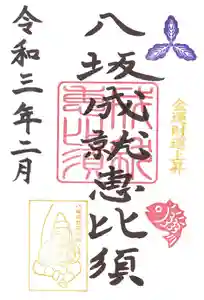 八坂成就恵比須
令和三年二月
金運財運上昇